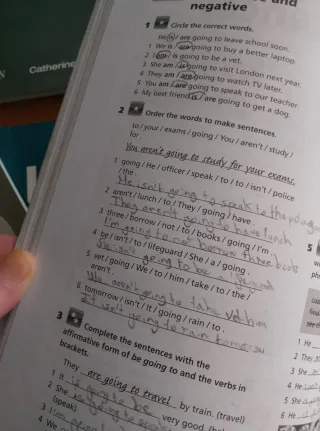 Catherine
and
negative
1 Circle the correct words.
He is / are going to leave school soon.
1 We is / are going to buy a better laptop.
2 I am / is going to be a vet.
3 She am / is going to visit London next year.
4 They am / are going to watch TV later.
5 You am / are going to speak to our teacher.
6 My best friend is / are going to get a dog.
2 Order the words to make sentences.
to / your / exams / going / You / aren't / study /
for .
You aren't going to study for your exams.
1 going / He / officer / speak / to / to / isn't / police
/ the .
He isn't going to speak to the
2 aren't / lunch / to / They / going / have .
They aren't going to have lunch
3 three / borrow / not / to / books / going / I'm .
I'm going to not borrow three books
4 be / isn't / to / lifeguard / She / a / going .
She isn't going to be a
5 vet / going / We / to / him / take / to / the /
aren't .
We aren't going to take vet him
6 tomorrow / isn't / It / going / rain / to .
It isn't going to rain tomorrow
3 Complete the sentences with the
affirmative form of be going to and the verbs in
brackets.
They are going to travel by train. (travel)
1 It is going to be very good. (be)
2 She is going to
(speak)
3 I
4 We
5
1 He
2 They
3 She
4 He
5 We
6 He